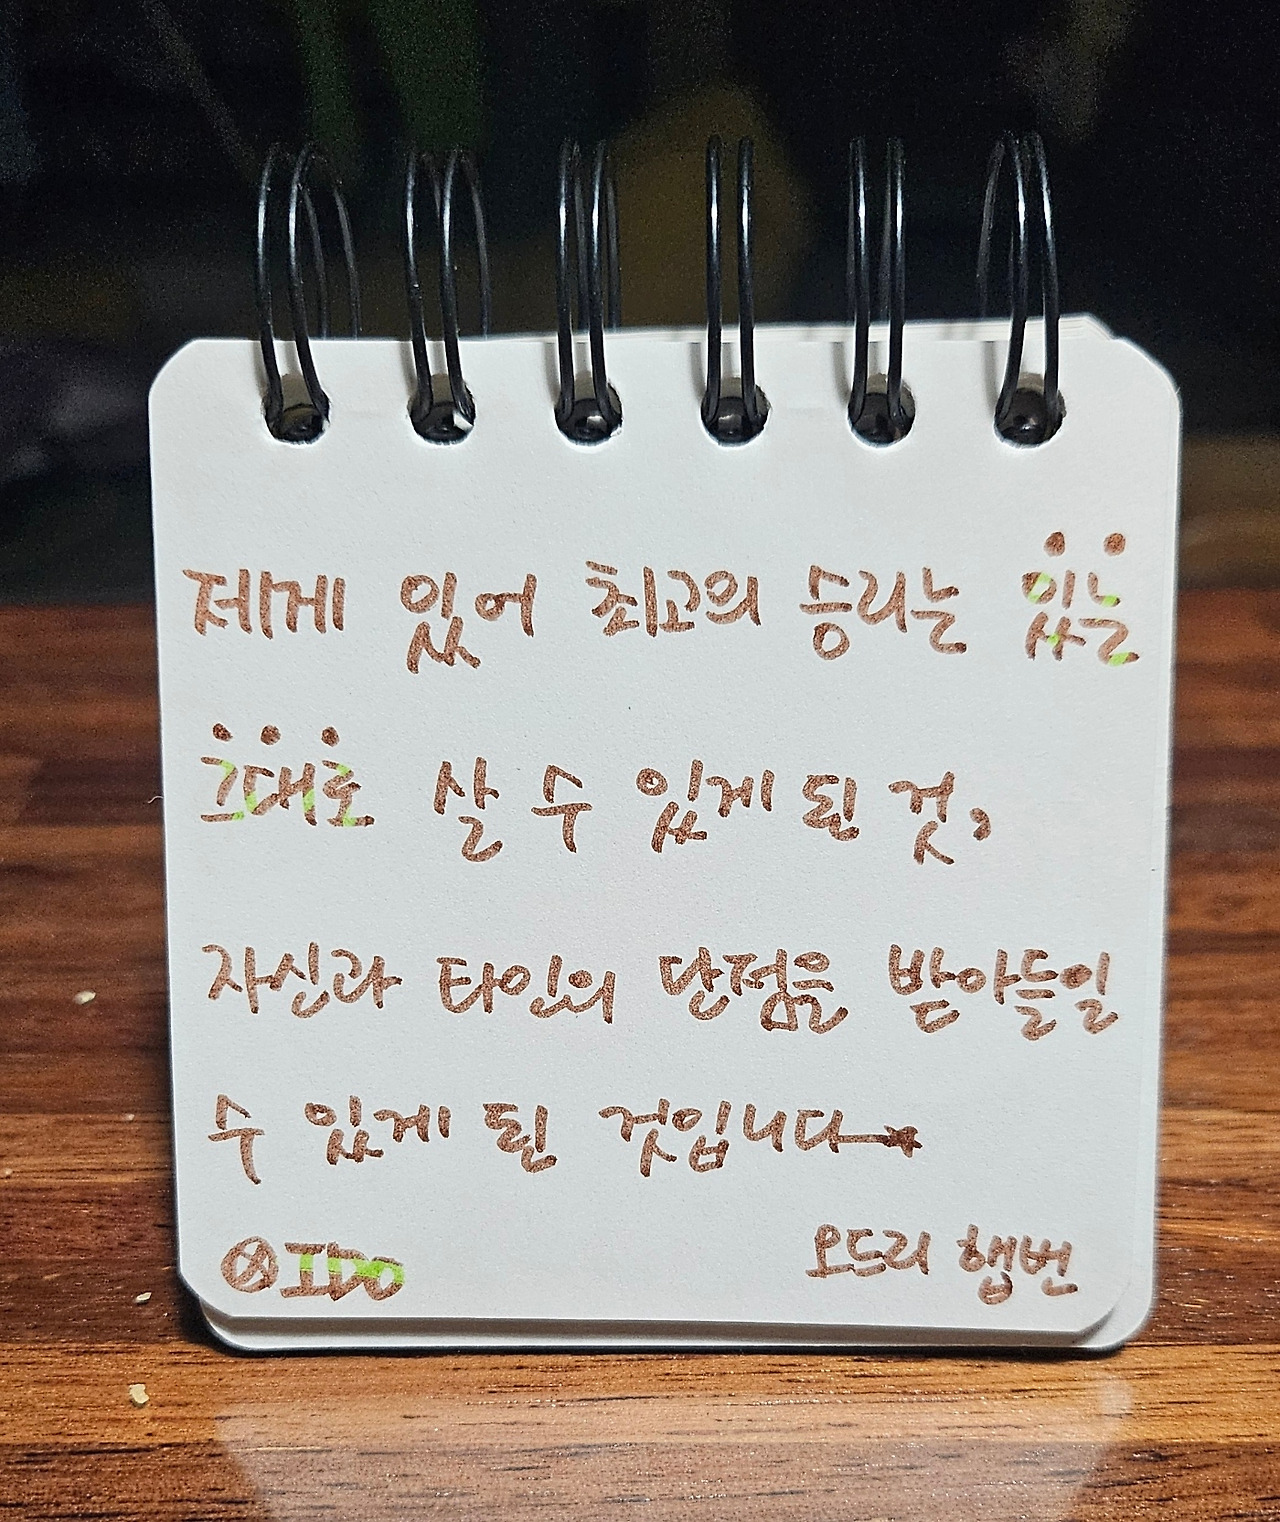 제게 있어 최고의 승리는 있는
그대로 살 수 있게 된 것,
자신과 타인의 단점을 받아들일
수 있게 된 것입니다
IDO 오드리 햅번